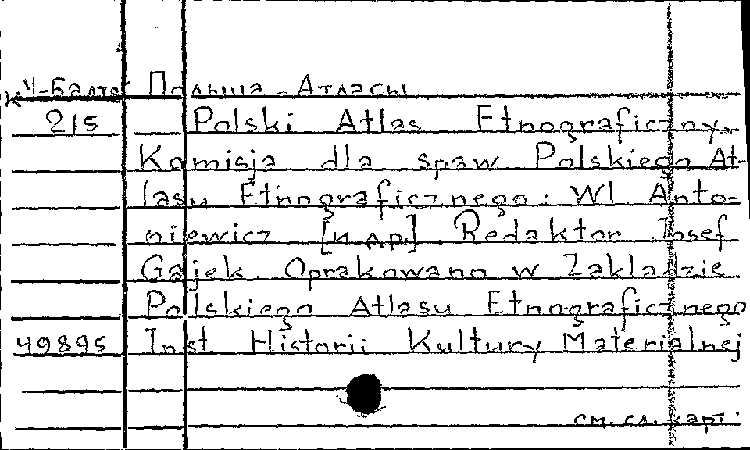 К VI-Балто Польша - Атласы
215 Polski Atlas Etnograficzny.
Komisja dla spaw Polskiego At-
lasu Etnograficznego: Wl Anto-
niewicz [и др.] Redaktor Josef
Gajek. Oprakowano w Zakladzie
Polskiego Atlasu Etnograficznego
49895 Inst Historii Kultury Materialnej
см. сл. карт.